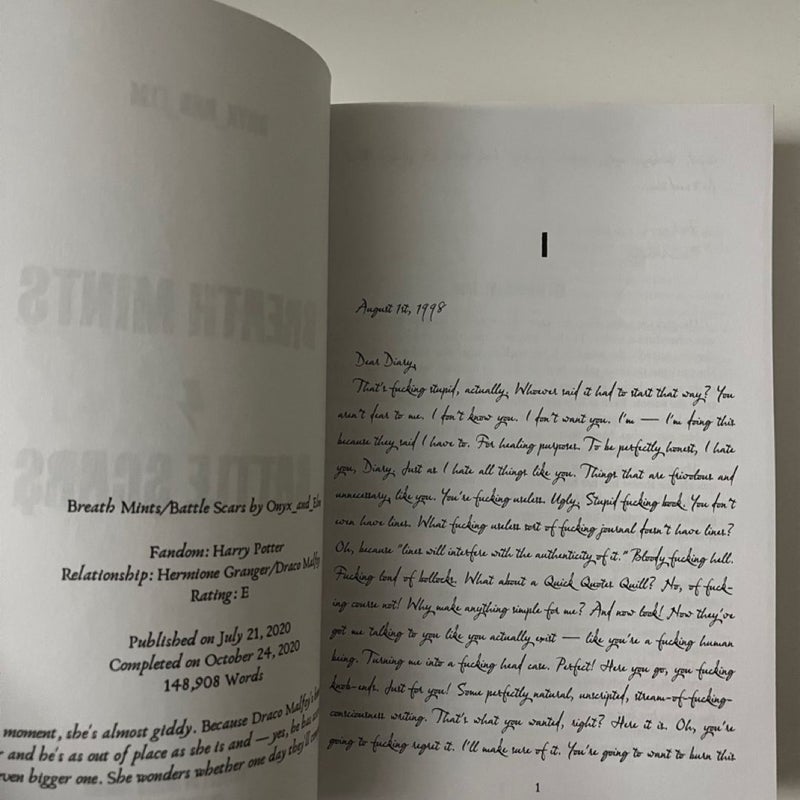 Breath Mints/Battle Scars by Onyx_and_Elm
Fandom: Harry Potter
Relationship: Hermione Granger/Draco Malfoy
Rating: E
Published on July 21, 2020
Completed on October 24, 2020
148,908 Words
moment, she's almost giddy. Because Draco Malfoy's
and he's as out of place as she is and — yes, he has
even bigger one. She wonders whether one day they'll
I
August 1st, 1998
Dear Diary,
That's fucking stupid, actually. Whoever said it had to start that way? You
aren't dear to me. I don't know you. I don't want you. I'm — I'm doing this
because they said I have to. For healing purposes. To be perfectly honest, I hate
you, Diary. Just as I hate all things like you. Things that are frivolous and
unnecessary, like you. You're fucking useless. Ugly. Stupid fucking book. You don't
even have lines. What fucking useless sort of fucking journal doesn't have lines?
Oh, because "lines will interfere with the authenticity of it." Bloody fucking hell.
Fucking load of bollocks. What about a Quick Quotes Quill? No, of fuck-
ing course not! Why make anything simple for me? And now look! Now they've
got me talking to you like you actually exist — like you're a fucking human
being. Turning me into a fucking head case. Perfect! Here you go, you fucking
knob-ends. Just for you! Some perfectly natural, unscripted, stream-of-fucking-
consciousness writing. That's what you wanted, right? Here it is. Oh, you're
going to fucking regret it. I'll make sure of it. You're going to want to burn this
1